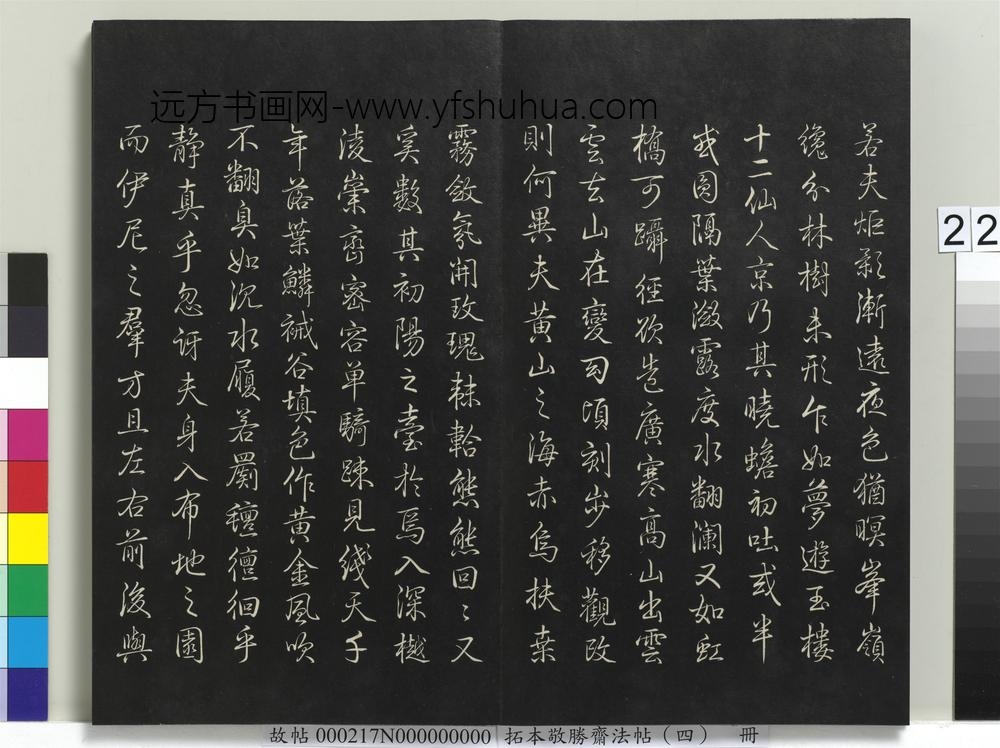 远方书画网-www.yfshuhua.com
若夫炬影漸遠夜色猶暝峯嶺
纔分林樹未形乍如夢遊玉樓
十二仙人京乃其曉蟾初吐或半
或圓隔葉潋露度水翻瀾又如虹
橋可躡徑欲造廣寒高山出雲
雲去山在變幻頃刻步移觀改
則何異夫黃山之海赤烏扶桑
霧斂氛開玫瑰棘軨熊熊回〻又
奚數其初陽之臺於焉入深樾
凌崇密容單騎疎見綫天千
年落葉鱗裓谷填色作黃金風吹
不翻臭如沉水履若罽氊徊乎
靜真乎忽訝夫身入布地之園
而伊尼之羣方且左右前後與
22
故帖 000217N000000000 拓本敬勝齋法帖（四） 冊